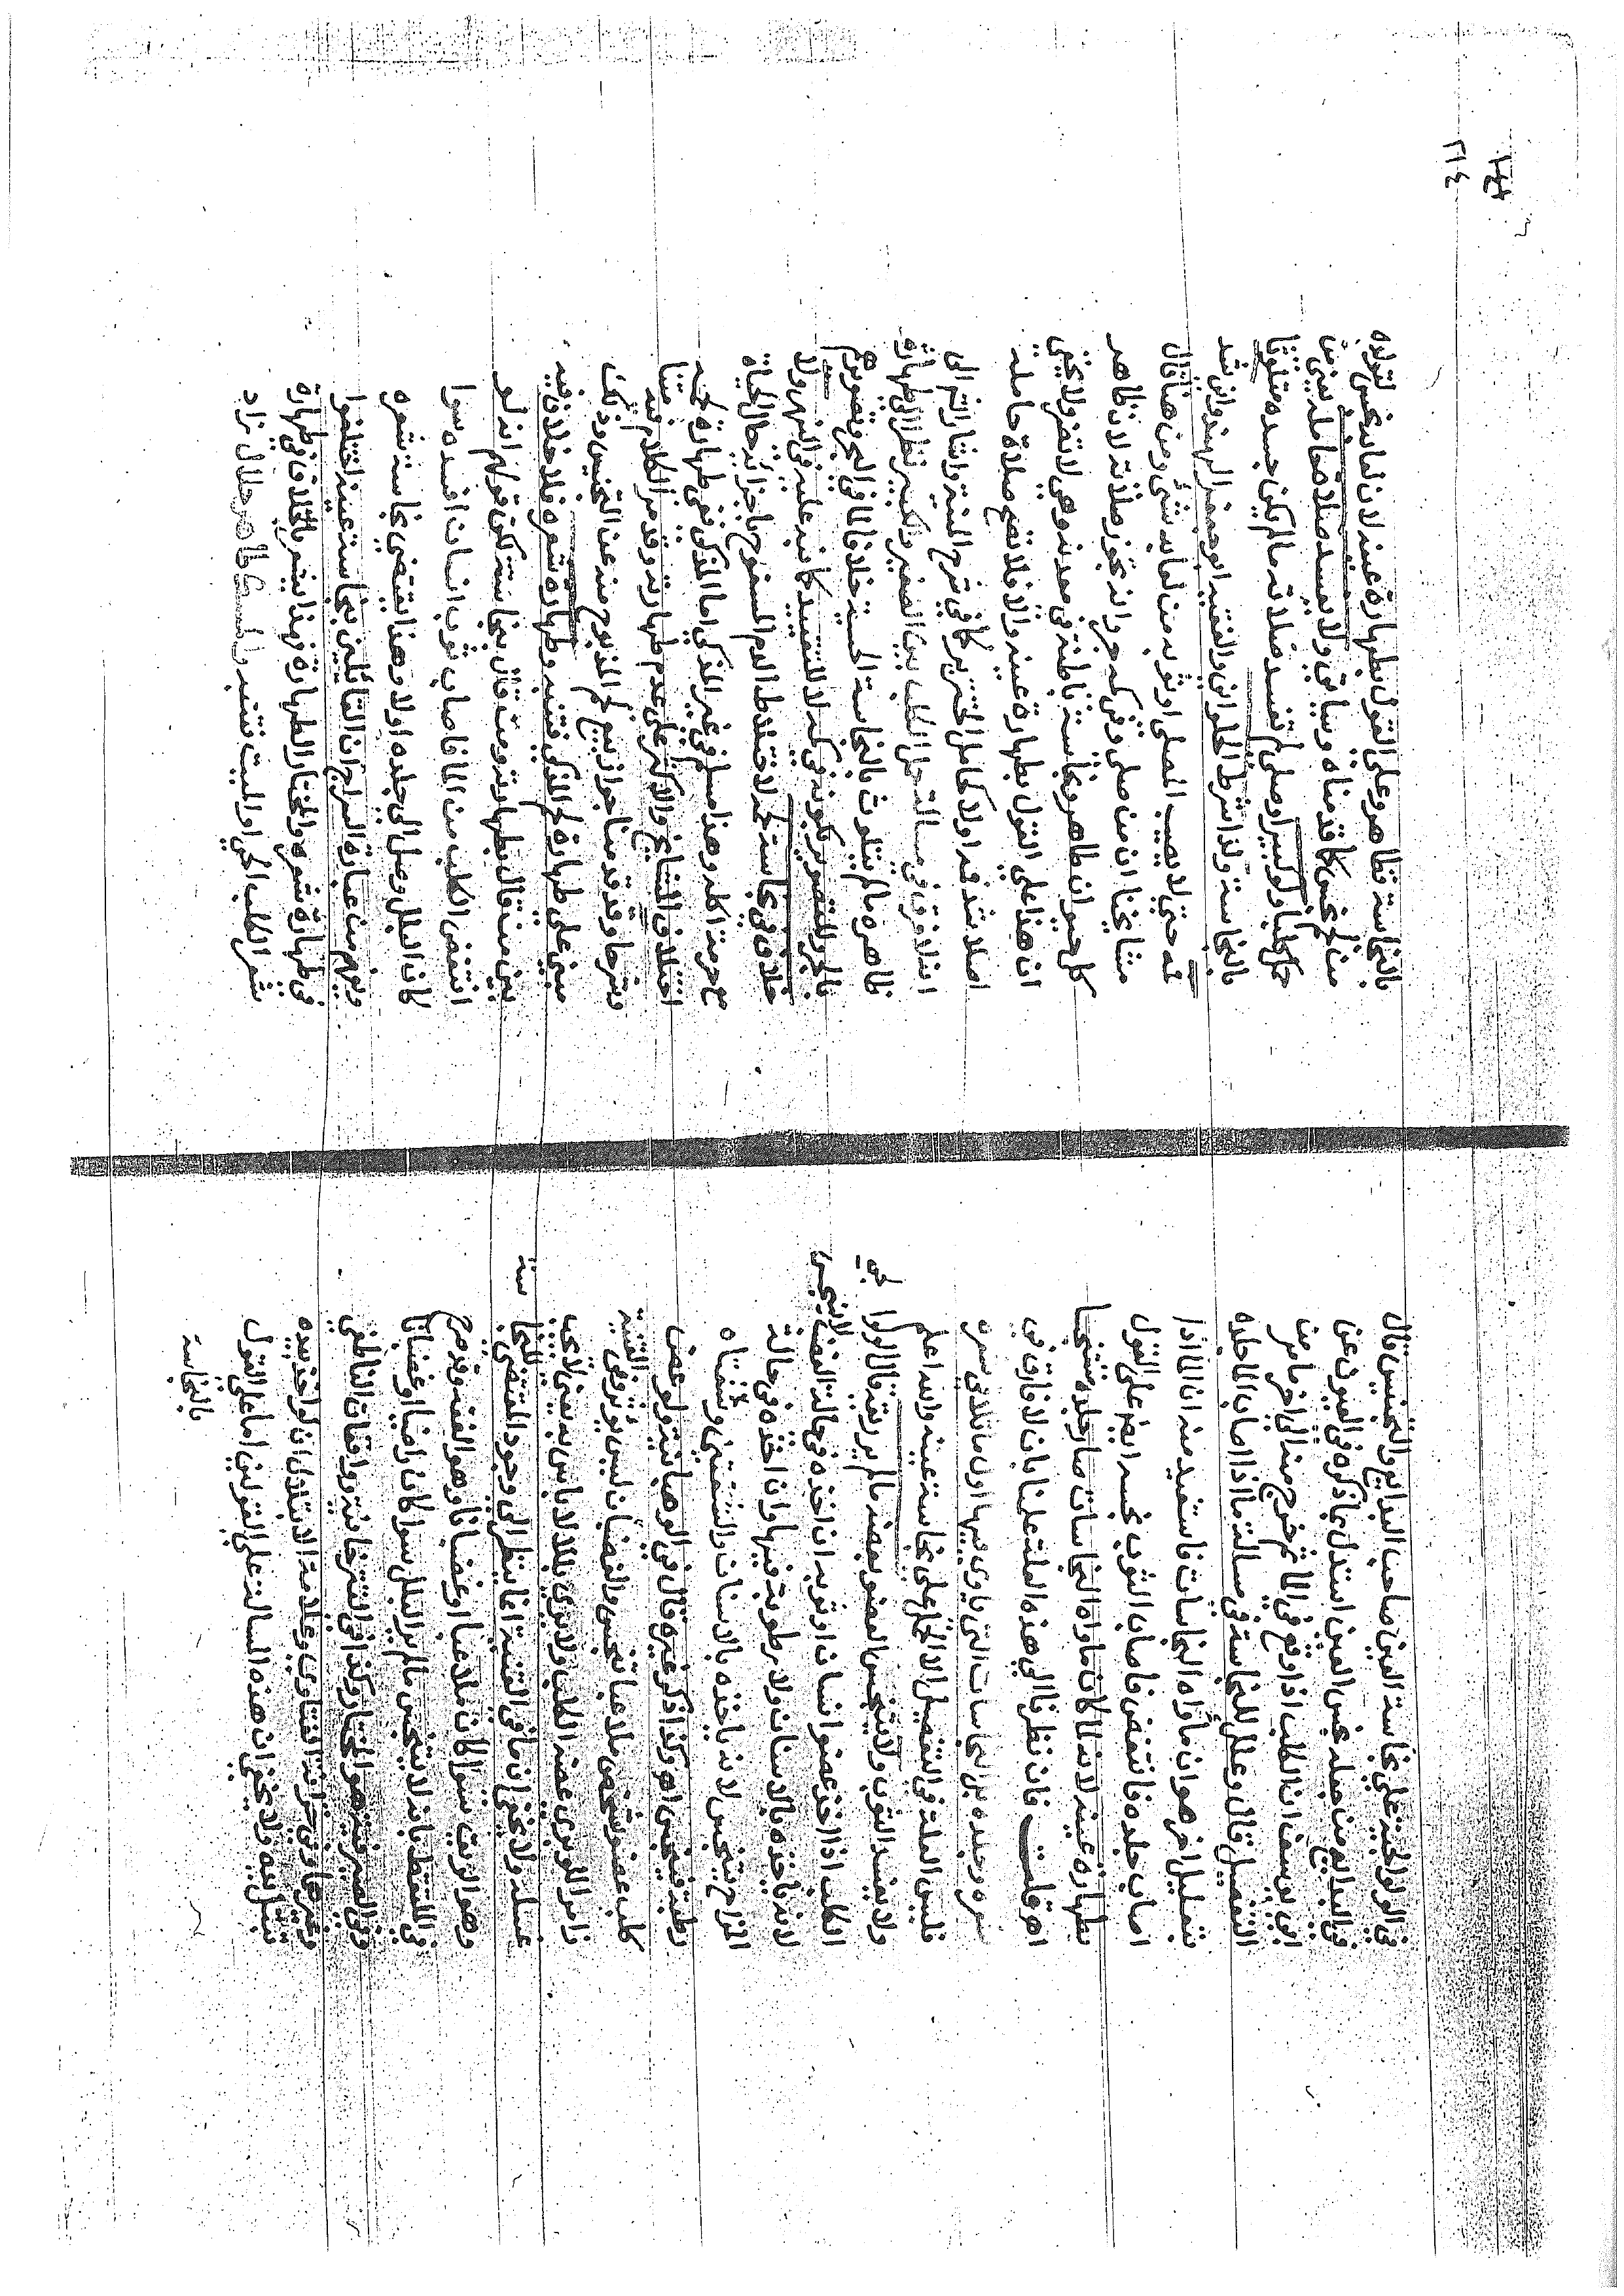 ٢١٤
في الولوالجية على نجاسة العين صاحب البدايع والتجنيس قال
في البدايع من جعله نجس العين استدل بما ذكره في العيون عن
ابي يوسف ان الكلب اذا وقع في الماء ثم خرج منه الى اخر ما مر من
التفصيل قال وعلل للنجاسة في مسالة ما اذا اصاب الماء جلده
بتعليل اخر هو ان ماواه النجاسات فاستفيد منه ان الماء اذا
اصاب جلده فانتفض فاصاب الثوب نجسه ايضا على القول
بطهارة عينه لانه لما كان ماواه النجاسات صار جلده متنجسا
اهـ قلت فان نظرنا الى هذه العلة علمنا بان لا فارق بين
شعره وجلده بل النجاسات التي ياوي فيها اول ما تلاقي شعره
فليس العلة في التفصيل الا الحمل على نجاسة عينه والله اعلم
ولا يفسد الثوب ولا يتنجس العضو بعضه ما لم ير ريقه قالوا
الكلب اذا اخذ عضو انسان او ثوبه ان اخذه في حالة الغضب لا يتنجس
لانه ياخذه بالاسنان ولا رطوبة فيها وان اخذه في حالة
المزاح يتنجس لانه ياخذه بالاسنان والشفتين وشفتاه
رطبة فيتنجس اهـ وكذا ذكر غيره قال في الوهبانية ولو عض
كلب عضو شخص ملاعبا تنجس والغضبان ليس يوثر وفي القنية
رامزا للوبري عضه الكلب ولا يرى بللا لا باس به يعني لا يجب
غسله ولا يخفى ان ما في القنية انما ينظر الى وجود المقتضي للنجاسة
وهو الريق سوا كان ملاعبا او غضبانا وهو الفقه وقد صرح
في الملتقط بانه لا يتنجس ما لم ير البلل سوا كان راضيا او غضبانا
وفي الصيرفية هو المختار وكذا في التترخانية وواقعات الناطفي
وغيرها وفي خزانة الفتاوي وعلامة الابتلال ان لو اخذ بيده
تبتل يده ولا يخفى ان هذه المسالة على القولين اما على القول
بالنجاسة
بالنجاسة فظاهر وعلى القول بطهارة عينه لان لعابه نجس لتولده
من لحم نجس كما قدمناه وسياتي ولا يفسد صلاة حامله يعني من
حمل كلبا ولو كبيرا وصلى لم تفسد صلاته ما لم يكن جسده متلوثا
بالنجاسة ولذا شرط الحلواني والفقيه ابو جعفر الهندواني شد
فمه حتى لا يصيب المصلي او ثوبه من لعابه شئ ومن هنا قال
مشايخنا ان من صلى وفي كمه جرو انه تجوز صلاته لان ظاهر
كل حيوان طاهر ونجاسة باطنه في معدنه وهي لا تضر ولا يخفى
ان هذا على القول بطهارة عينه والا فلا تصح صلاة حاملة
اصلا شد فمه او لا كحامل الخنزير كما في شرح المنية واشار الى
انه لا فرق في مسالة حمل الكلب بين الصغير والكبير نظرا الى طهارة
ظاهره ما لم يتلوث بالنجاسة الحسية خلافا لما في البحر وتصويرهم
بالجرو لتصوير كونه في كمه لا للتقييد كما نبه عليه في النهر ولا
خلاف في نجاسة لحمه لاختلاط الدم المسفوح باجزائه حال الحياة
مع حرمة اكله وهذا مسلم في غير المذكى اما المذكى ففي طهارة لحمه
اختلاف المشايخ والاكثر على عدم طهارته وقد مر الكلام فيه متنا
وشرحا وقد قدمنا جواز بيع لحم المذبوح منه عن التجنيس وذلك
مبني على طهارة لحم المذكى فتنبه وطهارة شعره فلا خلاف فيه
بين من قال بطهارته ومن قال بنجاسته لكن قولهم انه لو
انتفض الكلب من الماء فاصاب ثوب انسان افسده سوا
كان البلل وصل الى جلده او لا وهذا يقتضي نجاسة شعره
ويفهم من عبارة السراج ان القائلين بنجاسة عينه اختلفوا
في طهارة شعره والمختار الطهارة فهذا يشعر بالخلاف في طهارة
شعر الكلب الحي او الميت فتنبه والمسك طاهر حلال زاد